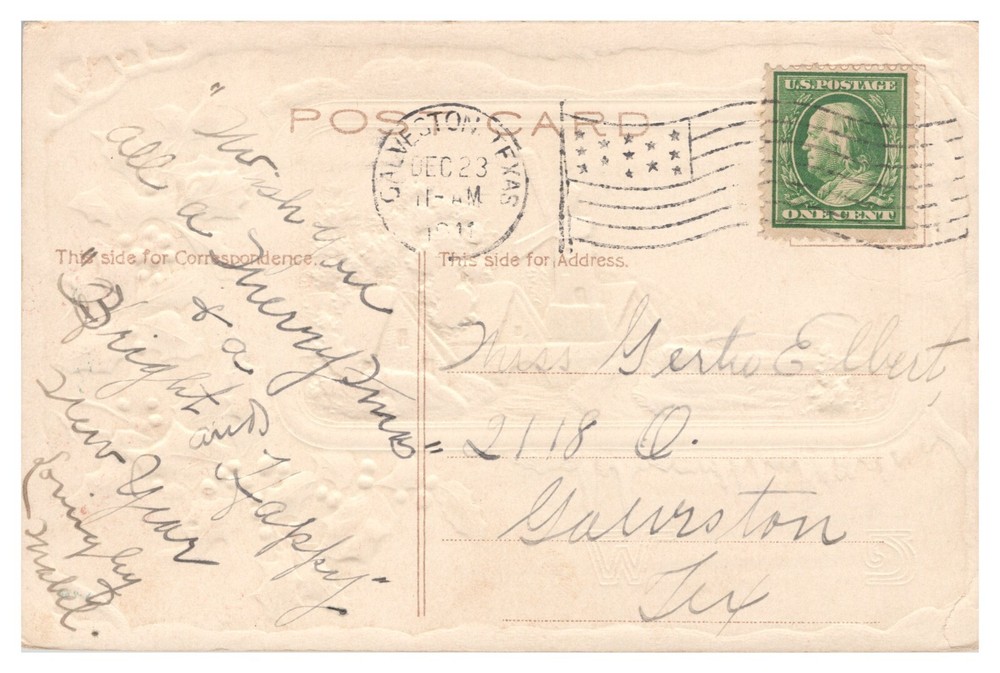 POST CARD
GALVESTON, TEXAS
DEC 23
11-AM
1911
U.S. POSTAGE
ONE CENT
This side for Correspondence.
This side for Address.
" Wish you
all
a Merry Xmas"
& a
"Bright
and Happy"
New Year
Lovingly
Mabel.
Miss Gertie Elbert,
2118 Q.
Galveston
Tex
W